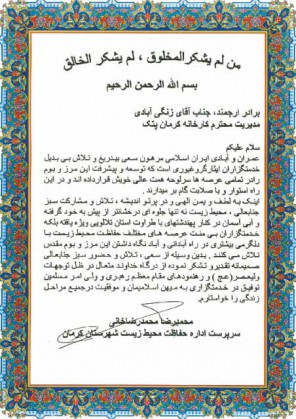 من لم یشکرالمخلوق ، لم یشکر الخالق
بسم الله الرحمن الرحیم
برادر ارجمند، جناب آقای زنگی آبادی
مدیریت محترم کارخانه کرمان پتک
سلام علیکم
عمران و آبادی ایران اسلامی مرهون سعی بیدریغ و تلاش بی بدیل
خدمتگزاران ایثارگروغیوری است که توسعه و پیشرفت این مرز و بوم
رادر تمامی عرصه ها سرلوحه همت عالی خویش قرارداده اند و در این
راه استوار و با صلابت گام بر میدارند .
اینک به لطف و یمن الهی و در پرتو اندیشه ، تلاش و مشارکت سبز
جنابعالی ، محیط زیست نه تنها جلوه ای درخشانتر از پیش به خود گرفته
و آبی آسمان در کنار پهندشتهای با طراوت استان تلالویی ویژه یافته بلکه
خدمتگزاران بی منت عرصه های مختلف حفاظت محیط زیست با
دلگرمی بیشتری در راه آبادانی و آباد نگاه داشتن این مرز و بوم مقدس
تلاش می کنند . بدین وسیله از سعی ، تلاش و حضور سبز جنابعالی
صمیمانه تقدیر و تشکر نموده از درگاه خداوند متعال در ظل توجهات
ولیعصر(عج) و رهنمودهای مقام معظم رهبری و ولی امر مسلمین
توفیق در خدمتگزاری به میهن اسلامیمان و موفقیت درجمیع مراحل
زندگی را خواستارم.
محمدرضا محمدرضاخانی
سرپرست اداره حفاظت محیط زیست شهرستان کرمان